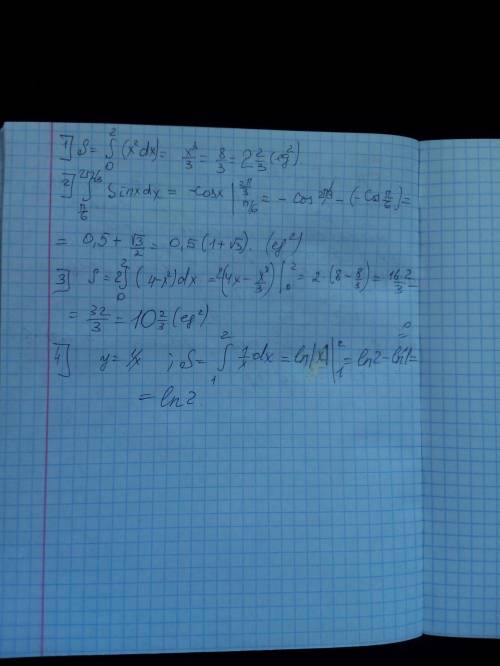 1] S = ∫₀² (x² dx) = x³/3 = 8/3 = 2 2/3 (eg²)
2] ∫_{π/6}^{2π/3} Sinx dx = -cosx |_{π/6}^{2π/3} = - cos 2π/3 - (- Cos π/6) =
= 0,5 + √3/2 = 0,5 (1+√3). (eg²)
3] S = 2∫₀² (4-x²) dx = 2(4x - x³/3) |₀² = 2 · (8 - 8/3) = 16·2/3 =
= 32/3 = 10 2/3 (eg²)
4] y = 1/x ; S = ∫₁² 1/x dx = ln|x| |₁² = ln2 - ln1 =
= ln2